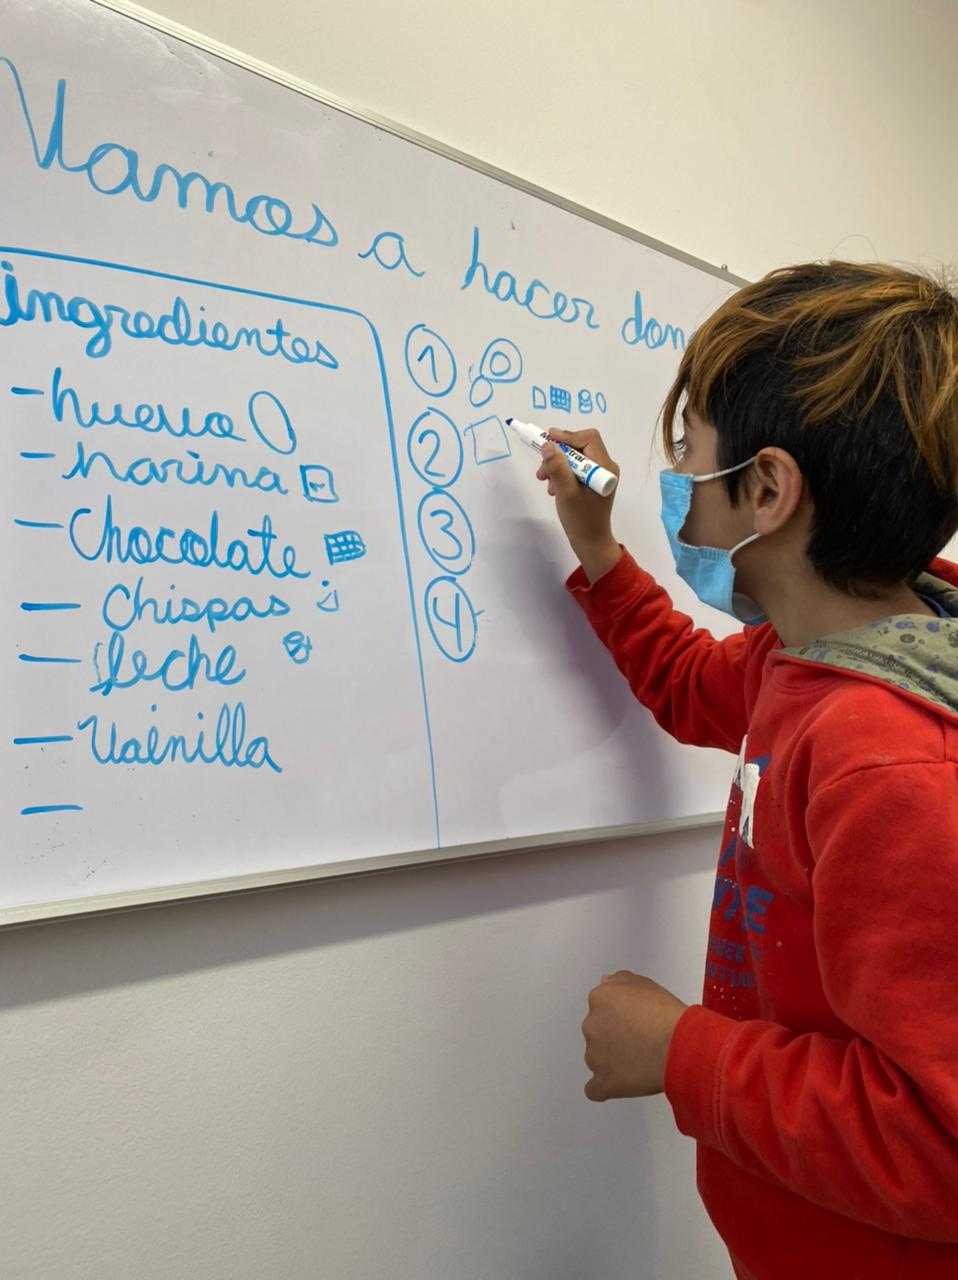 Vamos a hacer don
ingredientes
- huevo
- harina
- Chocolate
- Chispas
- leche
- Vainilla
-
1
2
3
4